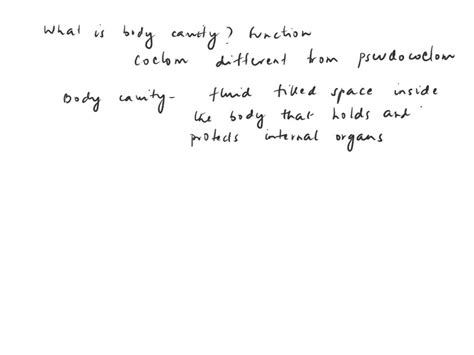 What is body cavity? function
coelom different from pseudocoelom
Body cavity - fluid filled space inside
the body that holds and
protects internal organs